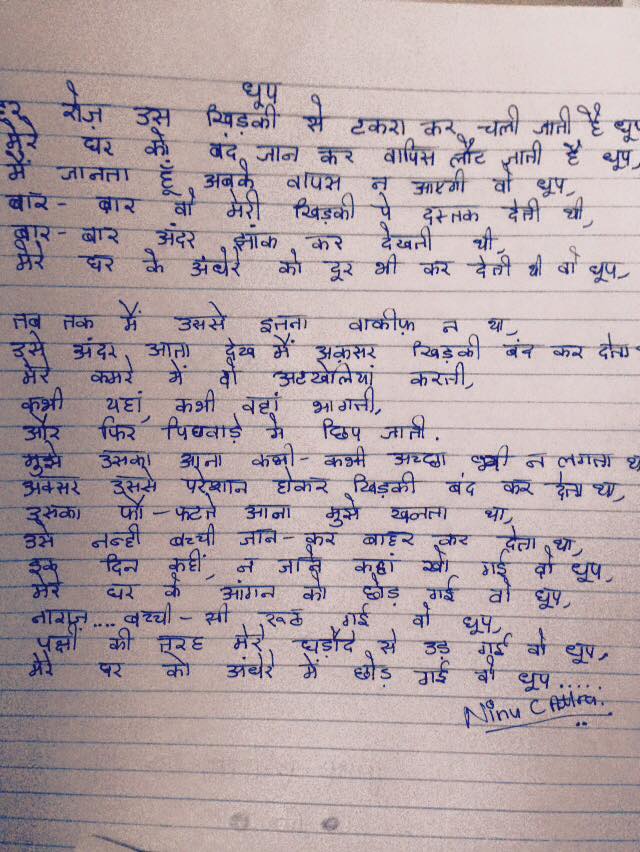 धूप
हर रोज़ उस खिड़की से टकरा कर चली जाती है धूप
मेरे घर को बंद जान कर वापिस लौट जाती है धूप,
मैं जानता हूँ अबके वापस न आएगी वो धूप,
बार-बार वो मेरी खिड़की पे दस्तक देती थी,
बार-बार अंदर झांक कर देखती थी,
मेरे घर के अंधेरे को दूर भी कर देती थी वो धूप,
तब तक मैं उससे इतना वाकीफ़ न था,
इसे अंदर आता देख मैं अक़सर खिड़की बंद कर देता
मेरे कमरे में वो अटखेलियां करती,
कभी यहां, कभी वहां भागती,
और फिर पिछवाड़े में छिप जाती.
मुझे उसका आना कभी-कभी अच्छा भी न लगता था
अक्सर इससे परेशान होकर खिड़की बंद कर देता था,
इसका पौ-फटते आना मुझे खलता था,
उसे नन्ही बच्ची जान-कर बाहर कर देता था,
इक दिन कहीं, न जाने कहां खो गई वो धूप,
मेरे घर के आंगन को छोड़ गई वो धूप,
नाराज़.... बच्ची-सी रूठ गई वो धूप,
पक्षी की तरह मेरे घड़ौदे से उड़ गई वो धूप,
मेरे घर को अंधेरे में छोड़ गई वो धूप.....
Ninu